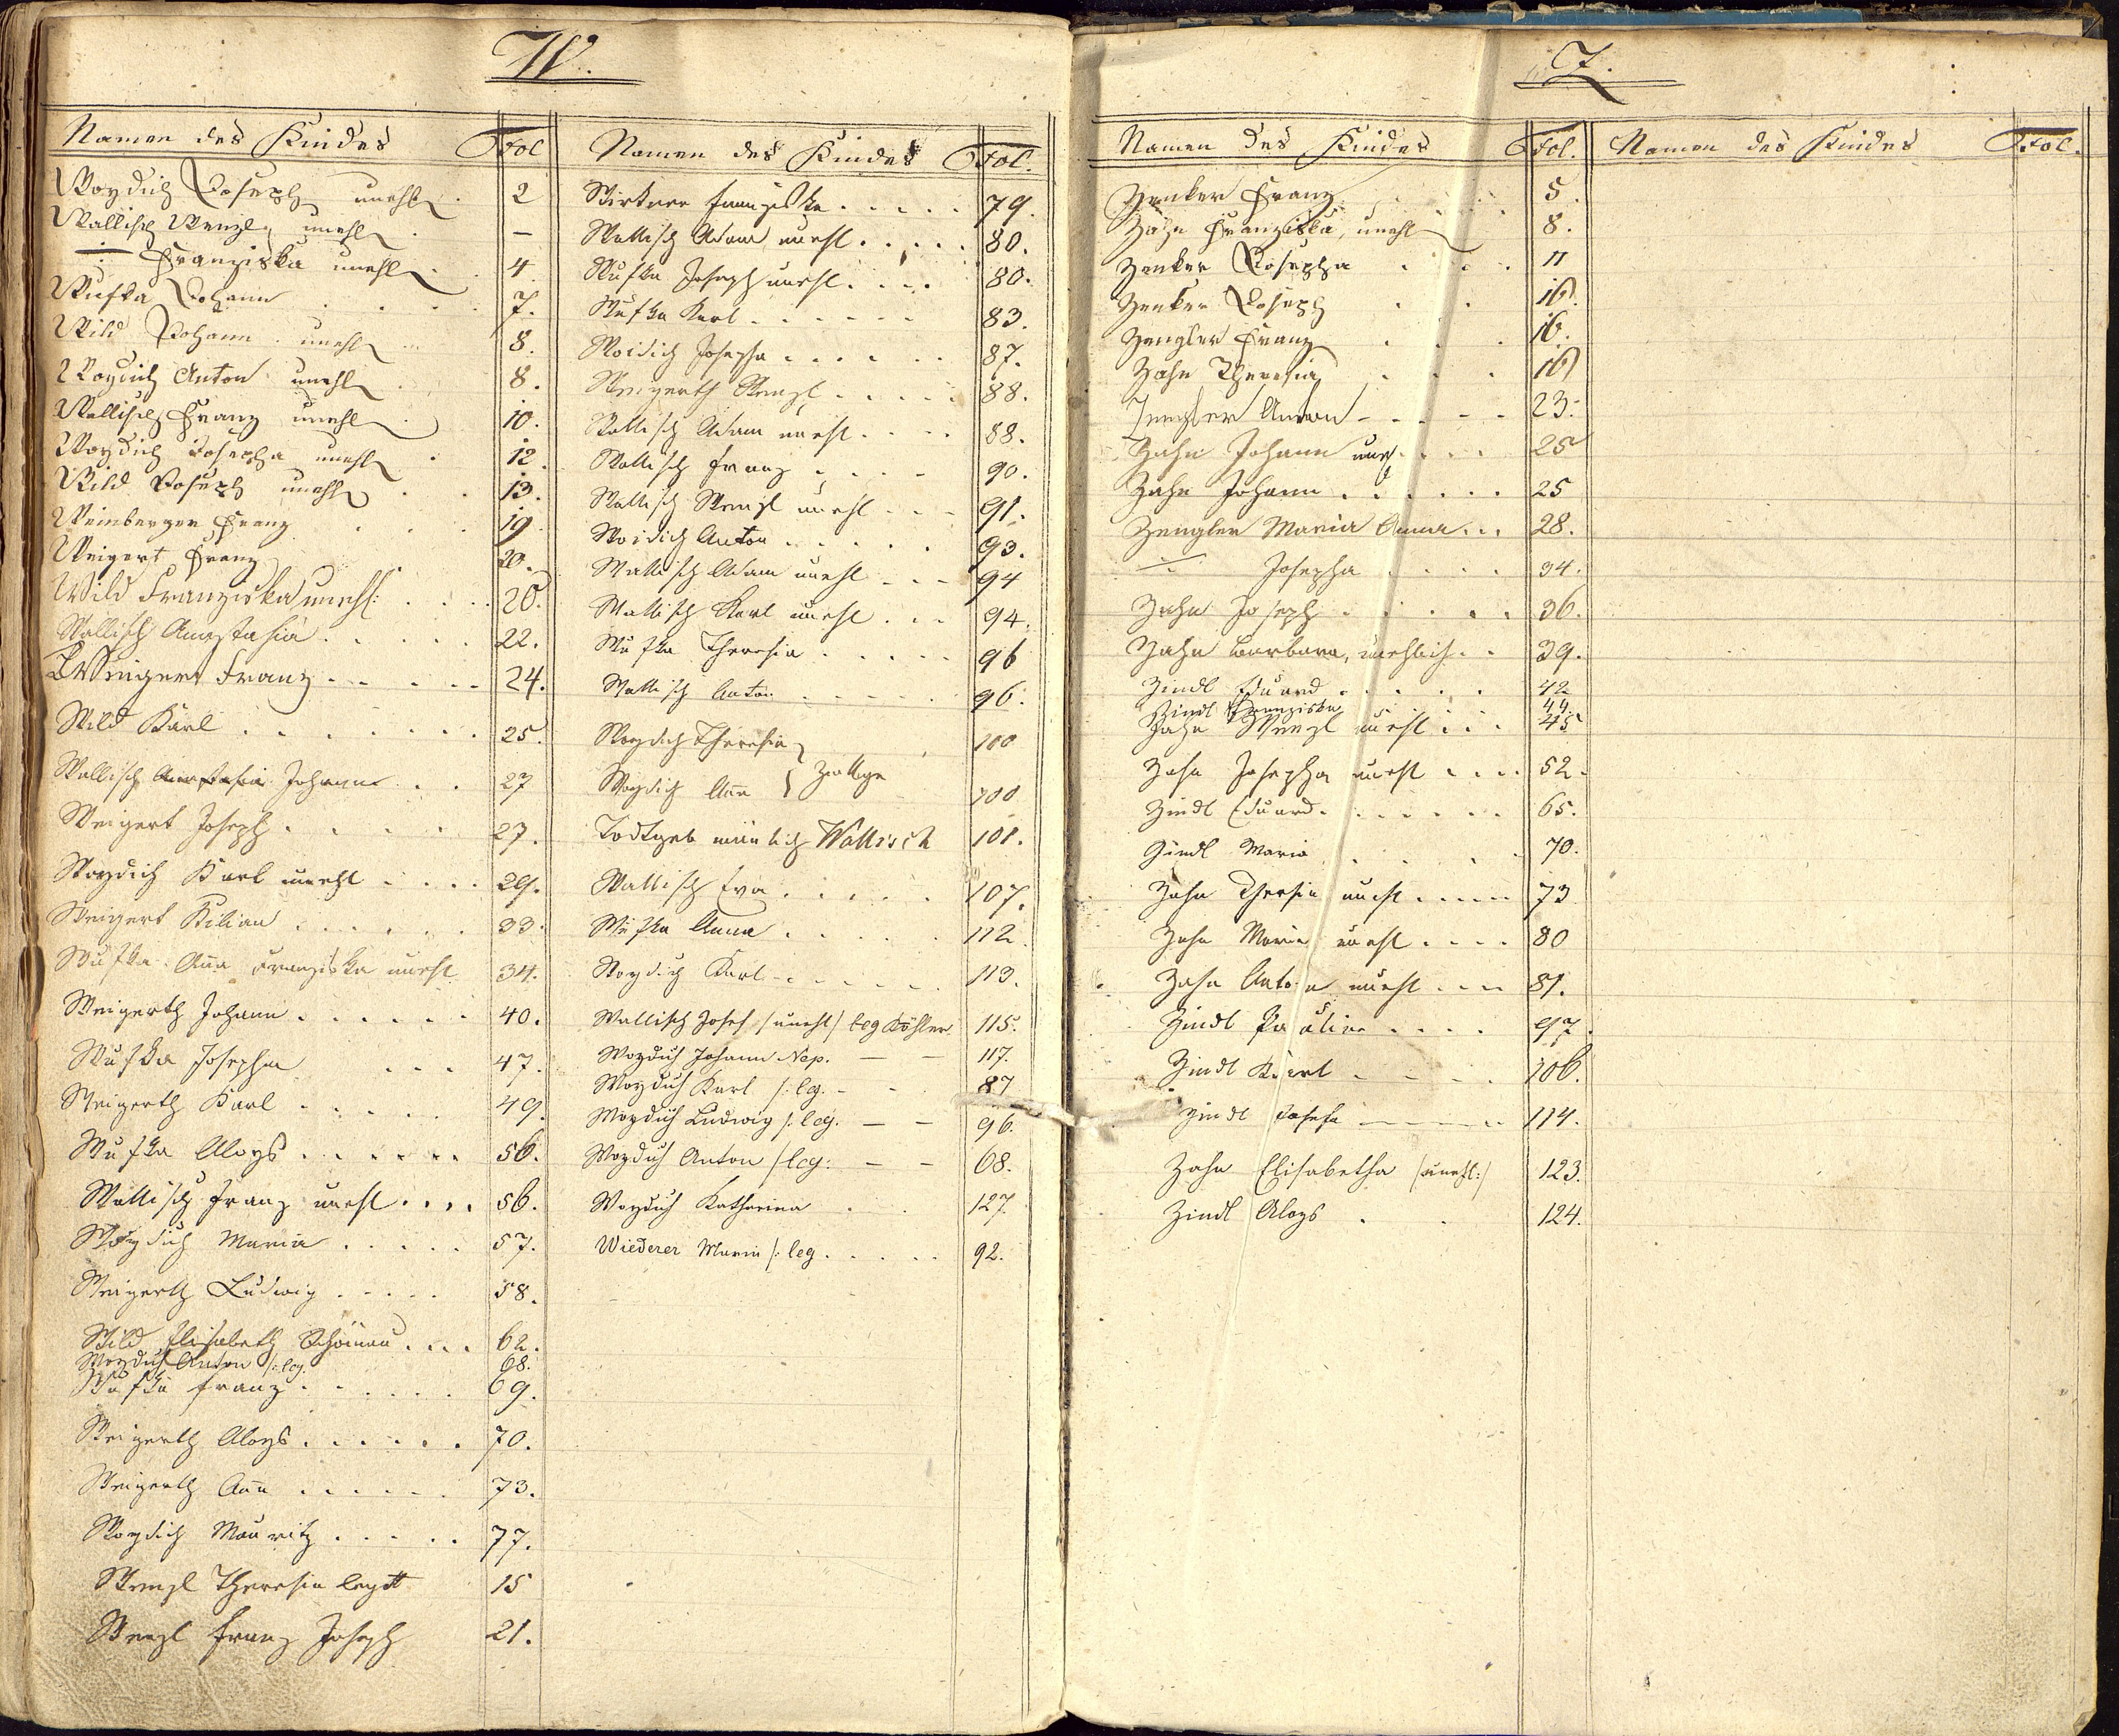 W.
Namen des Kindes Fol
Woydich Joseph unehl. 2
Wallisch Wenzl, unehl. –
–:– Franziska unehl. 4
Wufka Johann . . . 7.
Wild Johann unehl. 8.
Woydich Anton unehl. 8.
Wallisch Franz unehl. 10.
Woydich Josepha unehl. 12.
Wild Joseph unehl. 13.
Weinberger Franz 19.
Weigert Franz 20.
Wild Franziska unehl: 20.
Wallisch Anastasia . . . . 22.
Weigert Franz . . . . 24.
Wild Karl . . . . . . 25.
Wallisch Johann . . 27
Weigert Joseph . . . . 27.
Woydich Karl unehl . . . 29.
Weigert Kilian . . . . . 33.
Wufka Aña Franziska unehl 34.
Weigerth Johann . . . . . 40.
Wufka Josepha . . . 47.
Weigerth Karl . . . . . 49.
Wufka Aloys . . . . . . 56.
Wallisch Franz unehl . . . . 56.
Woydich Maria . . . . . 57.
Weigerth Ludwig . . . . . 58.
Wild Elisabeth Schönau . . . 62.
Woydich Anton /: leg. 68.
Wufka Franz . . . . . . 69.
Weigerth Aloys . . . . . . 70.
Weigerth Aña . . . . . . 73.
Woydich Mauritz . . . . . 77.
Wenzl Theresia legit 15
Wenzl Franz Joseph 21.
Namen des Kindes Fol.
Wirkner Franziska . . . . . 79.
Wallisch Adam unehl . . . . . 80.
Wufka Joseph unehl . . . . 80.
Wufka Karl . . . . . . 83.
Woidich Josepha . . . . . . 87.
Weigerth Wenzl . . . . . 88.
Wallisch Adam unehl . . . . 88.
Wallisch Franz . . . . . 90.
Wallisch Wenzl unehl . . . 91.
Woidich Anton . . . . . . 93.
Wallisch Adam unehl . . . 94
Wallisch Karl unehl . . . 94.
Wufka Theresia . . . . . 96
Wallisch Anton . . . . . 96.
Woydich Theresia } 100
Woydich Aña } Zwillige 100
Todtgeb mänlich Wallisch 101.
Wallisch Eva . . . . . 107.
Wufka Anna . . . . . 112.
Woydich Karl . . . . . . 113.
Wallisch Josef /unehl/ leg Köhler 115.
Woydich Johann Nep. — — 117.
Woydich Karl /: leg. — - 87
Woydich Ludwig /: leg. — — 96.
Woydich Anton /leg: — — 68.
Woydich Katharina . . 127.
Wiederer Maria /: leg . . . . . 92.
Z.
Namen des Kindes Fol.
Zenker Franz . . . 5.
Zahn Franziska, unehl 8.
Zenker Josepha . . . 11
Zenker Joseph . . 16.
Zengler Franz . . . 16.
Zahn Theresia . . . 16
Zengler Anton - - - - 23.
Zahn Johann une. . . . 25
Zahn Johann . . . . . . 25
Zengler Maria Anna . . . 28.
–:– Josepha . . . . 34.
Zahn Joseph . . . . . 36.
Zahn Barbara, unehlich . . 39.
Zindl Eduard . . . . . 42
Zindl Franziska . . . 44.
Zahn Wenzl unehl . . . 45
Zahn Josepha unehl . . . . 52.
Zindl Eduard . . . . . . 65.
Zindl Maria . . . . 70.
Zahn Thersia unehl . . . . . 73
Zahn Maria unehl . . . . 80
Zahn Anton unehl . . . . 81.
Zindl Pauline . . . . 97.
Zindl Karl - - - . 106.
Zindl Josefa — — — 114.
Zahn Elisabetha /unehl:/ 123.
Zindl Aloys . . 124.
Namen des Kindes Fol.